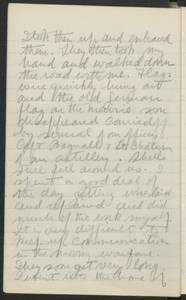 I took them up and embraced
them. They then took my
hand and walked down
the road with me. Flags
were quickly hung out
and the old German
flag on the mairie soon
disappeared carried off
by several of our officers
Capt Bagnall and
of our artillery. Shells
still fell around us. I
spent a good deal of
the day getting
and repaired and did
much of the work myself
It is very difficult to
keep up communication
in the moving warfare.
They soon get very long.
I went to the home of